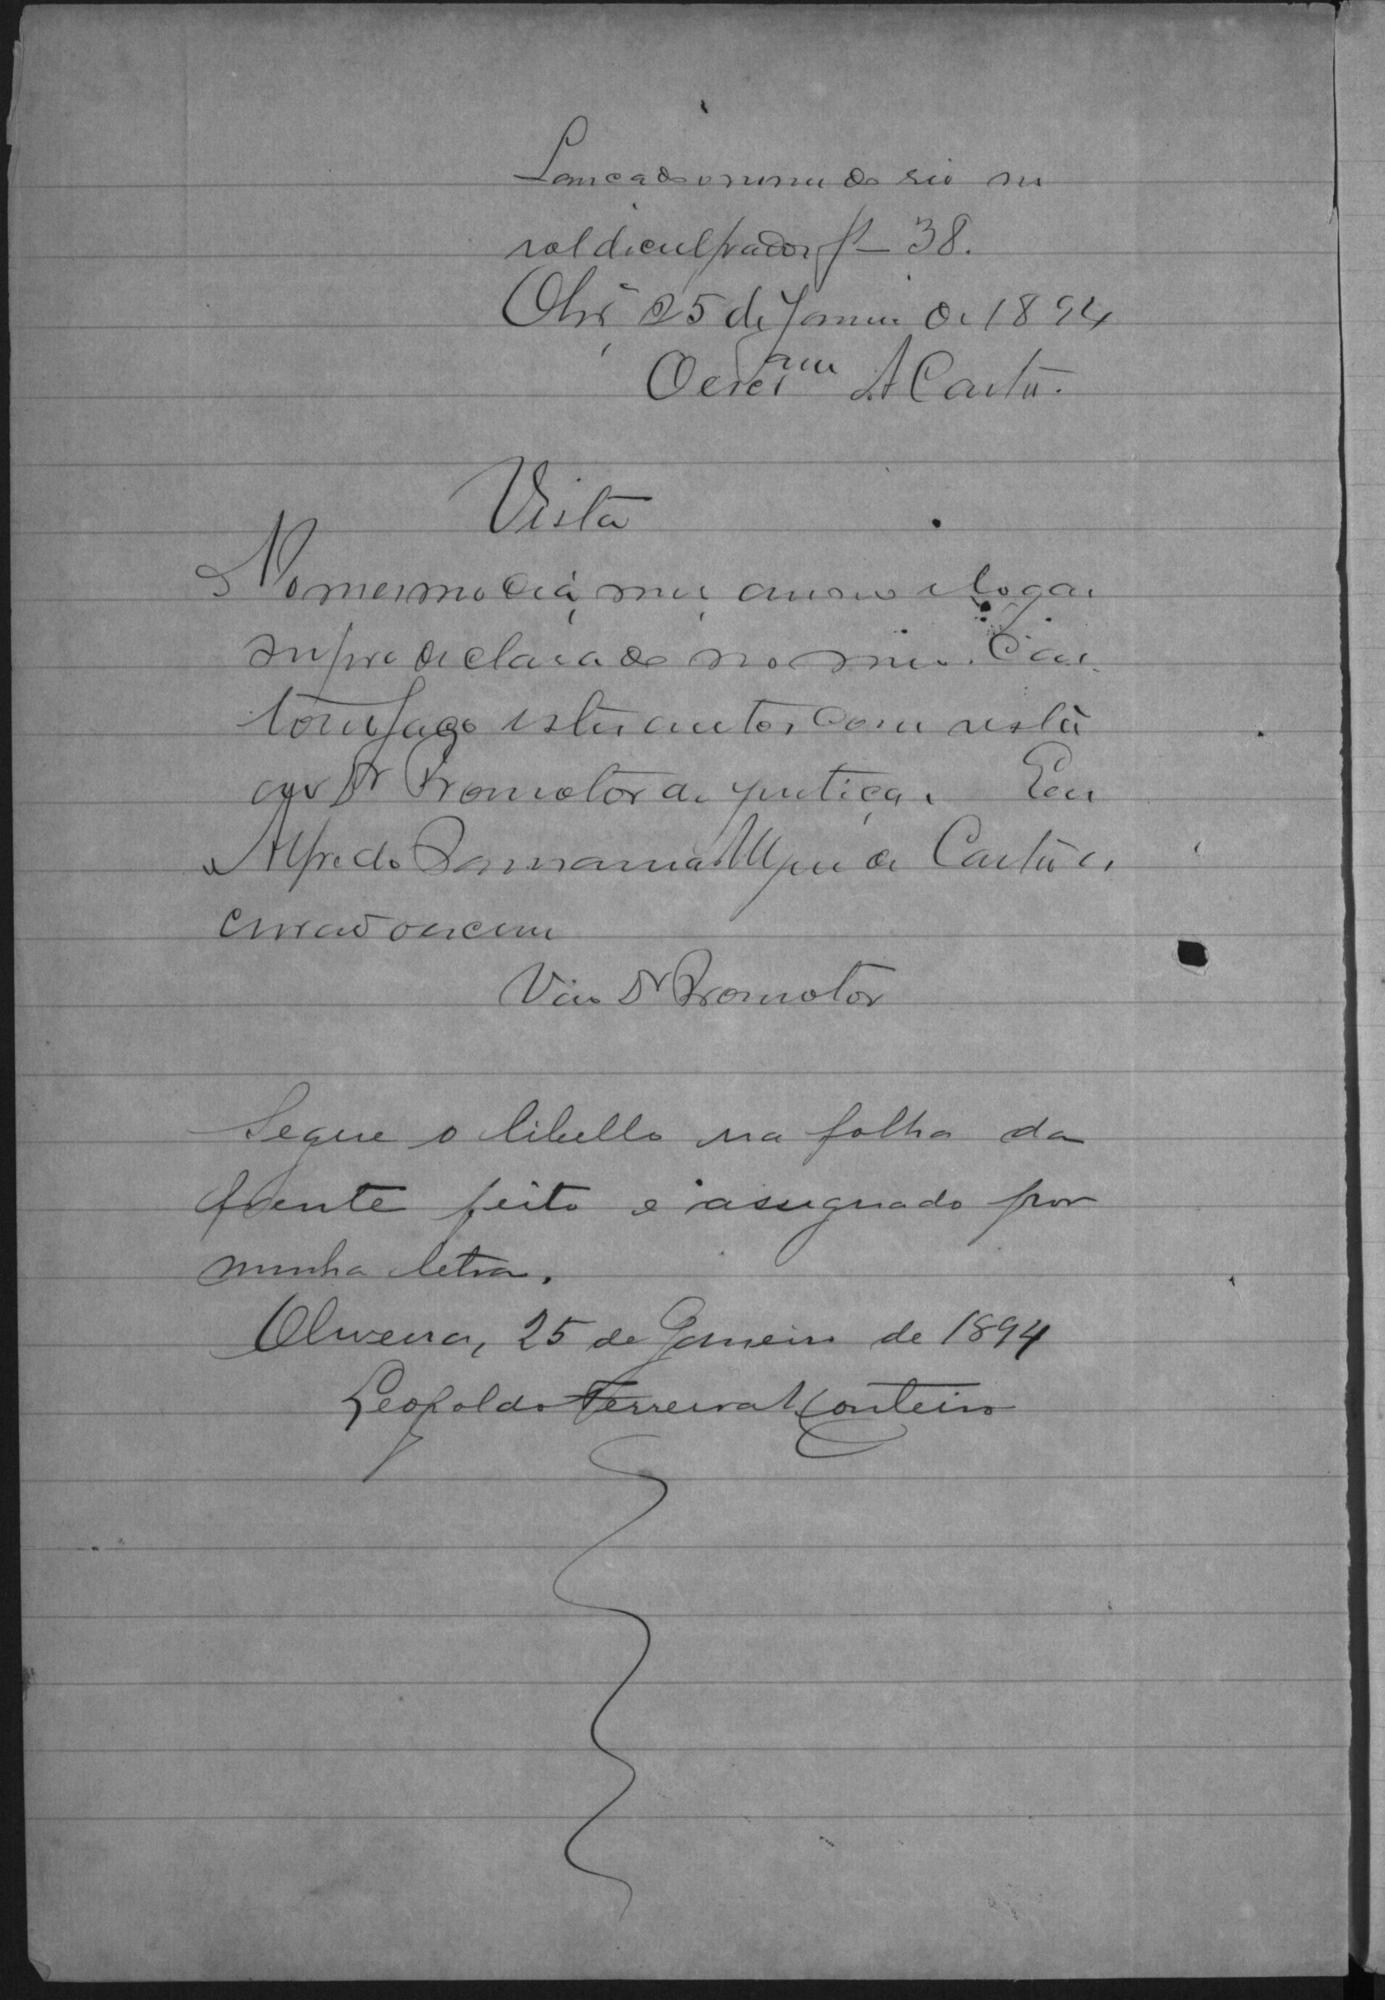 Lancado o nome do reo no
rol de culpados fl 38.
Olivª 25 de Janeiro de 1894
O escram A Castro.
Vista
No mesmo dia, mez, anno e logar
supra declarado no meu Car-
torio faço estes autos com vista
ao Dr Promotor da justiça. Eu
Alfredo de Castro es-
crivão o escrevi
Vão Dr Promotor
Segue o libello na folha da
frente feito e assignado por
minha letra.
Oliveira, 25 de Janeiro de 1894
Leopoldo Ferreira Monteiro